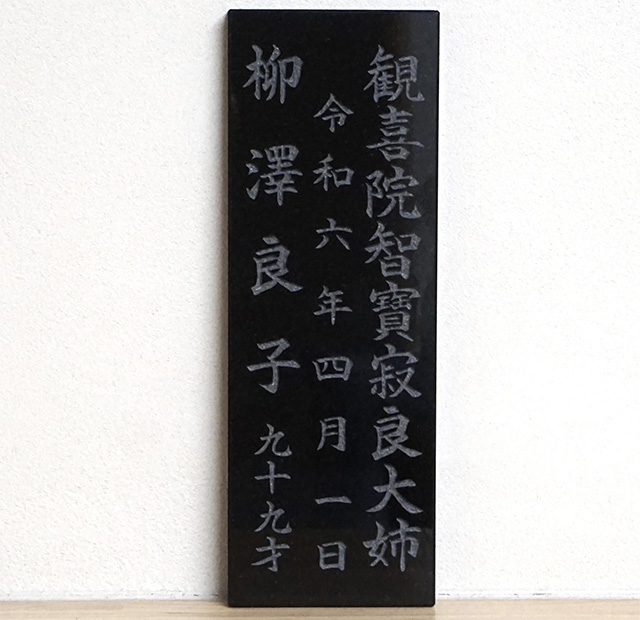 観喜院智寶寂良大姉
令和六年四月一日
柳澤良子 九十九才